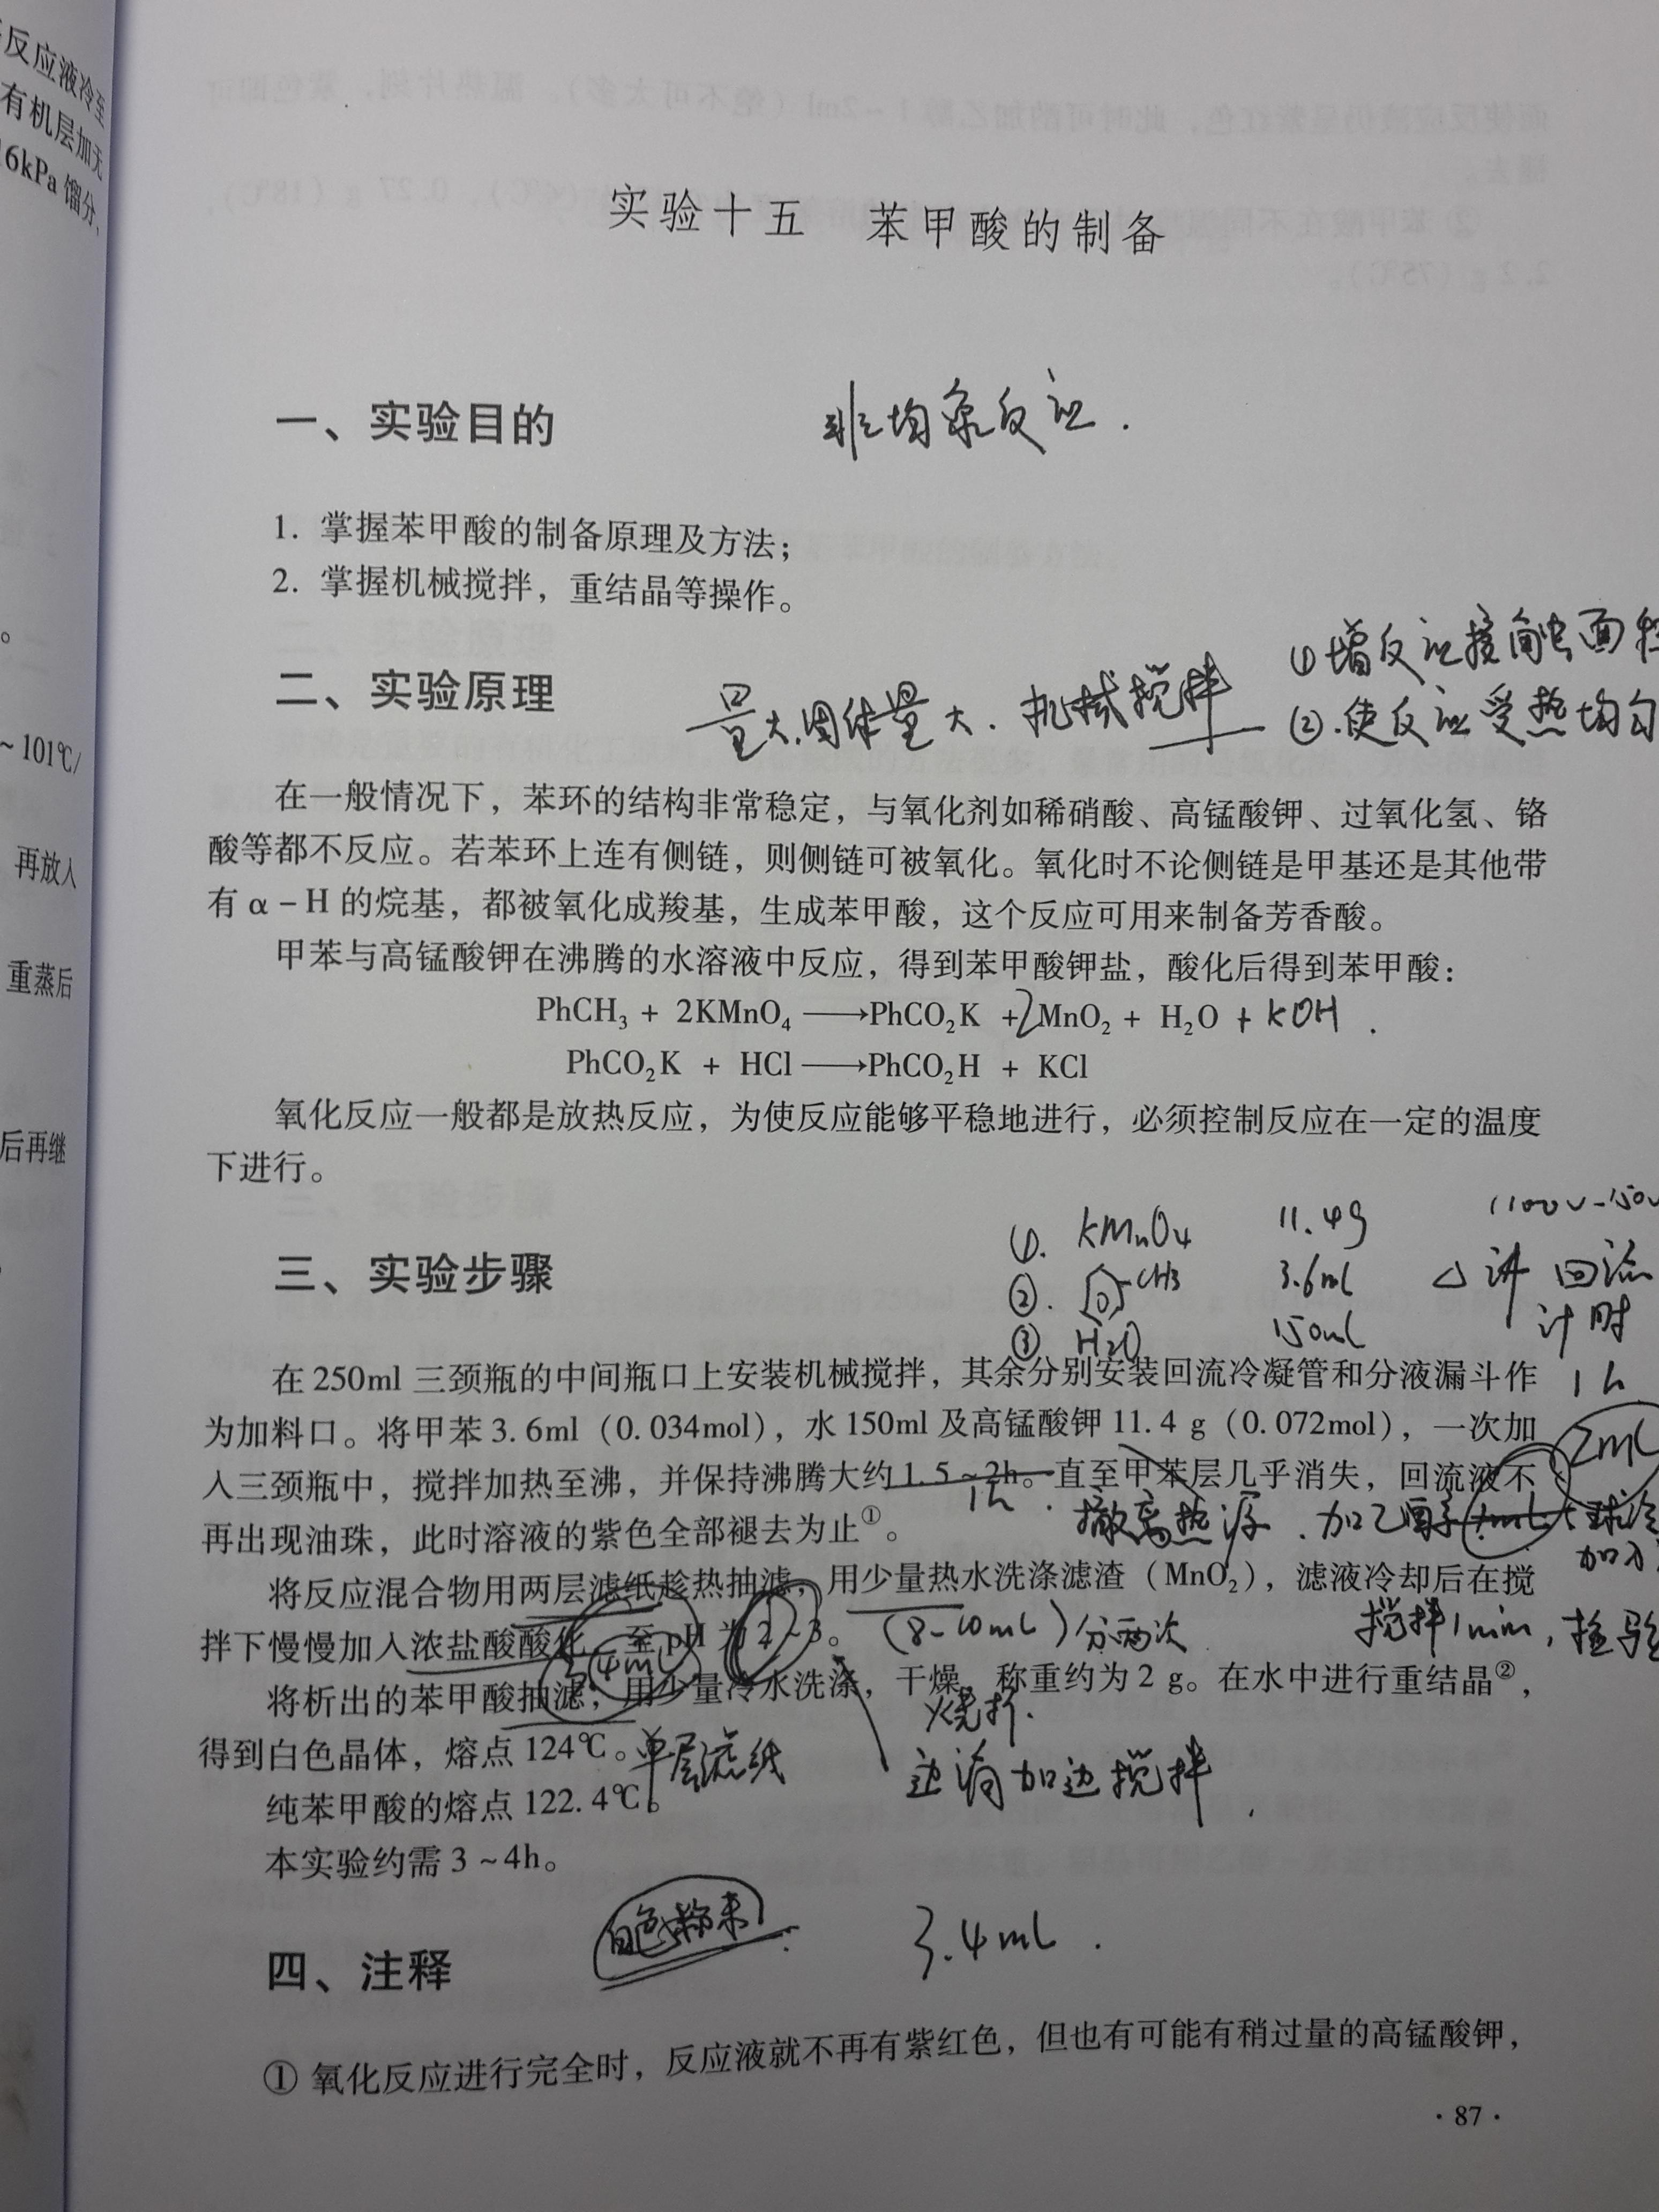 反应液冷至
有机层加无
16kPa 馏分，
。
~101℃/
再放入
重蒸后
后再继
实验十五 苯甲酸的制备
一、实验目的
非均象反应.
1. 掌握苯甲酸的制备原理及方法；
2. 掌握机械搅拌，重结晶等操作。
①增反应接触面积
二、实验原理
量大.固体量大. 机械搅拌
②.使反应受热均匀
在一般情况下，苯环的结构非常稳定，与氧化剂如稀硝酸、高锰酸钾、过氧化氢、铬
酸等都不反应。若苯环上连有侧链，则侧链可被氧化。氧化时不论侧链是甲基还是其他带
有 α－H 的烷基，都被氧化成羧基，生成苯甲酸，这个反应可用来制备芳香酸。
甲苯与高锰酸钾在沸腾的水溶液中反应，得到苯甲酸钾盐，酸化后得到苯甲酸：
PhCH₃ + 2KMnO₄ ⟶PhCO₂K +2MnO₂ + H₂O + KOH .
PhCO₂K + HCl ⟶PhCO₂H + KCl
氧化反应一般都是放热反应，为使反应能够平稳地进行，必须控制反应在一定的温度
下进行。
①. KMnO₄ 11.4g
三、实验步骤
②. CH3 3.6ml △ 沸 回流
③ H₂O 150ml 计时
在 250ml 三颈瓶的中间瓶口上安装机械搅拌，其余分别安装回流冷凝管和分液漏斗作
1h
为加料口。将甲苯 3. 6ml（0. 034mol），水 150ml 及高锰酸钾 11. 4 g（0. 072mol），一次加
2mL
入三颈瓶中，搅拌加热至沸，并保持沸腾大约 1. 5 ~ 2h。直至甲苯层几乎消失，回流液不
1h. 撤离热源. 加乙醇
再出现油珠，此时溶液的紫色全部褪去为止①。
加入
将反应混合物用两层滤纸趁热抽滤，用少量热水洗涤滤渣（MnO₂），滤液冷却后在搅
拌下慢慢加入浓盐酸酸化，至 pH 为 2~3。
(8-10mL) 分两次
搅拌1min，检验
4ml
将析出的苯甲酸抽滤，用少量冷水洗涤，干燥，称重约为 2 g。在水中进行重结晶②，
烧杯.
得到白色晶体，熔点 124℃。
单层滤纸
边滴加边搅拌.
纯苯甲酸的熔点 122. 4℃。
本实验约需 3 ~ 4h。
白色粉末
3.4mL .
四、注释
① 氧化反应进行完全时，反应液就不再有紫红色，但也有可能有稍过量的高锰酸钾，
· 87 ·